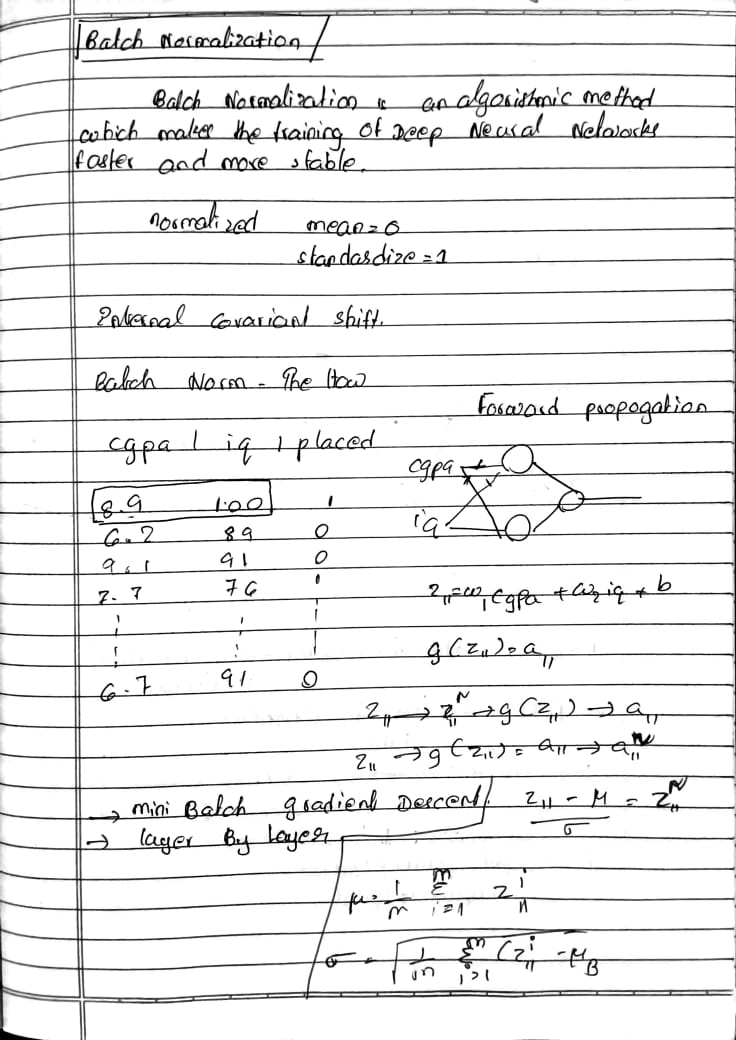 Batch Normalization
Batch Normalization is an algorithmic method
which makes the training of Deep Neural Networks
faster and more stable.
normalized mean = 0
standardize = 1
Internal Covariant shift.
Batch Norm - The How
Forward propogation
cgpa | iq | placed
8.9 100 1
6.2 89 0
9.1 91 0
7.7 76 1
6.7 91 0
cgpa
iq
z₁₁ = w₁ cgpa + w₂ iq + b
g(z₁₁) = a₁₁
z₁₁ → z₁₁ᴺ → g(z₁₁) → a₁₁
z₁₁ → g(z₁₁) = a₁₁ → a₁₁ᴺ
→ mini Batch gradient Descent
→ layer By Layer
(z₁₁ - μ) / σ = z₁₁ᴺ
μ = 1/m Σᵐᵢ₌₁ z₁₁ⁱ
σ = √(1/m Σᵐᵢ₌₁ (z₁₁ⁱ - μ_B